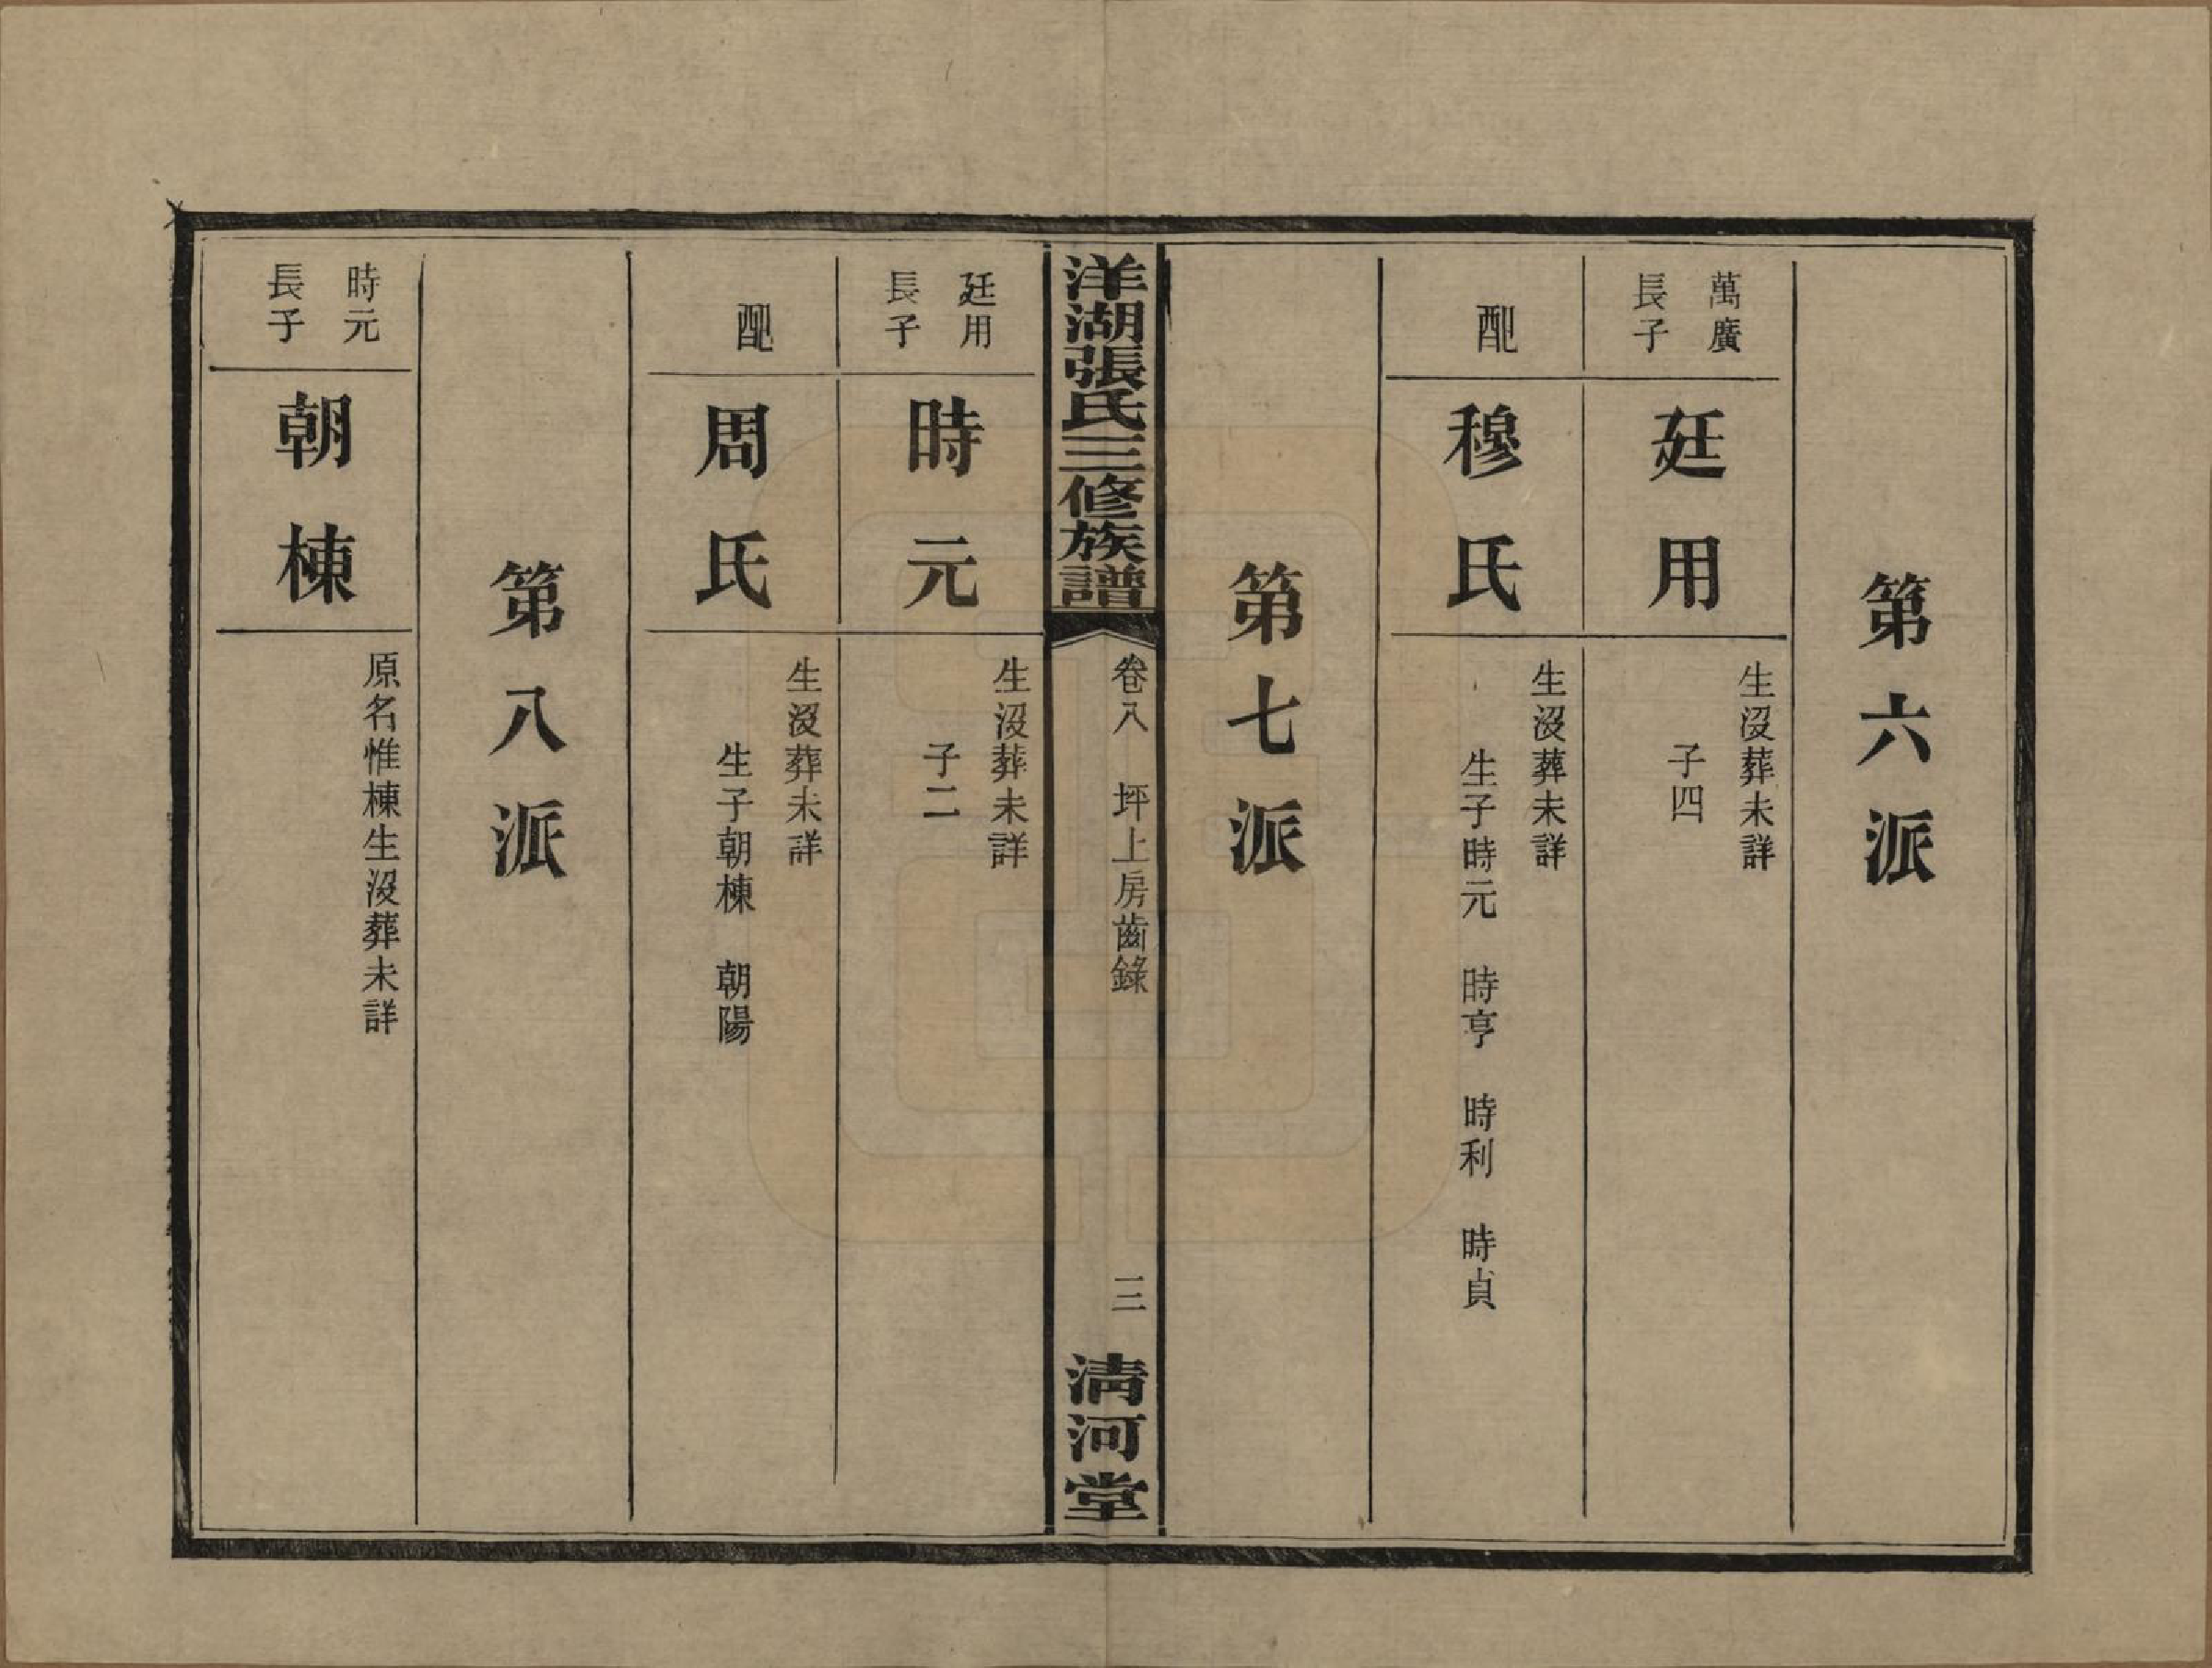 第六派
萬廣
長子
廷用
生沒葬未詳
子四
配
穆氏
生沒葬未詳
生子時元 時亨 時利 時貞
第七派
洋湖張氏三修族譜
卷八 坪上房齒錄
三
淸河堂
廷用
長子
時元
生沒葬未詳
子二
配
周氏
生沒葬未詳
生子朝棟 朝陽
第八派
時元
長子
朝棟
原名惟棟生沒葬未詳